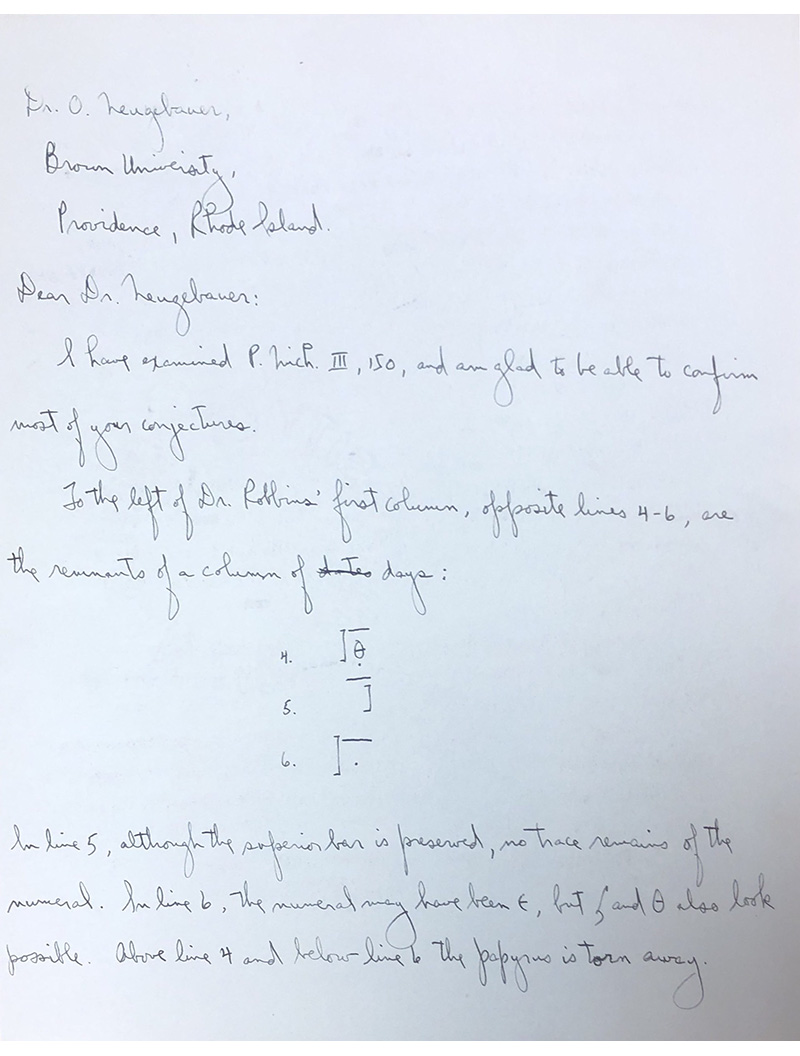 Dr. O. Neugebauer,
Brown University,
Providence, Rhode Island.
Dear Dr. Neugebauer:
I have examined P. Mich. III, 150, and am glad to be able to confirm
most of your conjectures.
To the left of Dr. Robbins' first column, opposite lines 4-6, are
the remnants of a column of dates days:
4. ]θ̣̅
5. ̅ ]
6. ]̣̅
In line 5, although the superior bar is preserved, no trace remains of the
numeral. In line 6, the numeral may have been ϵ, but ϛ and θ also look
possible. Above line 4 and below line 6 the papyrus is torn away.